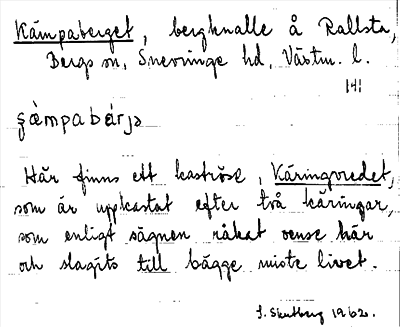 Kämpaberget, bergknalle å Rallsta,
Bergs sn, Snevringe hd, Västm. l.
141
Här finns ett kaströse, Käringoredet,
som är uppkastat efter två käringar,
som enligt sägnen råkat oense här
och slagits till bägge miste livet.
1962.